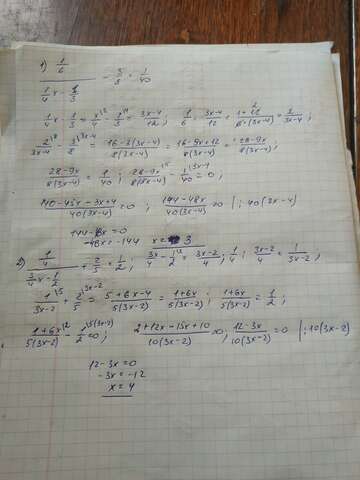 1) 1/6 / (1/4 x - 1/3) - 3/8 = 1/40
1/4 x - 1/3 = x/4 - 1/3 = (3x-4)/12 ; 1/6 : (3x-4)/12 = (1·12)/(6·(3x-4)) = 2/(3x-4) ;
2/(3x-4) - 3/8 = (16-3(3x-4))/(8(3x-4)) = (16-9x+12)/(8(3x-4)) = (28-9x)/(8(3x-4)) ;
(28-9x)/(8(3x-4)) = 1/40 ; (28-9x)/(8(3x-4)) - 1/40 = 0 ;
(140-45x-3x+4)/(40(3x-4)) = 0 ; (144-48x)/(40(3x-4)) = 0 | · 40(3x-4)
144-48x = 0
-48x = -144 x = 3
2) 1/4 / (3/4 x - 1/2) + 2/5 = 1/2 ; 3x/4 - 1/2 = (3x-2)/4 ; 1/4 : (3x-2)/4 = 1/(3x-2) ;
1/(3x-2) + 2/5 = (5+6x-4)/(5(3x-2)) = (1+6x)/(5(3x-2)) ; (1+6x)/(5(3x-2)) = 1/2 ;
(1+6x)/(5(3x-2)) - 1/2 = 0 ; (2+12x-15x+10)/(10(3x-2)) = 0 ; (12-3x)/(10(3x-2)) = 0 | · 10(3x-2)
12-3x = 0
-3x = -12
x = 4